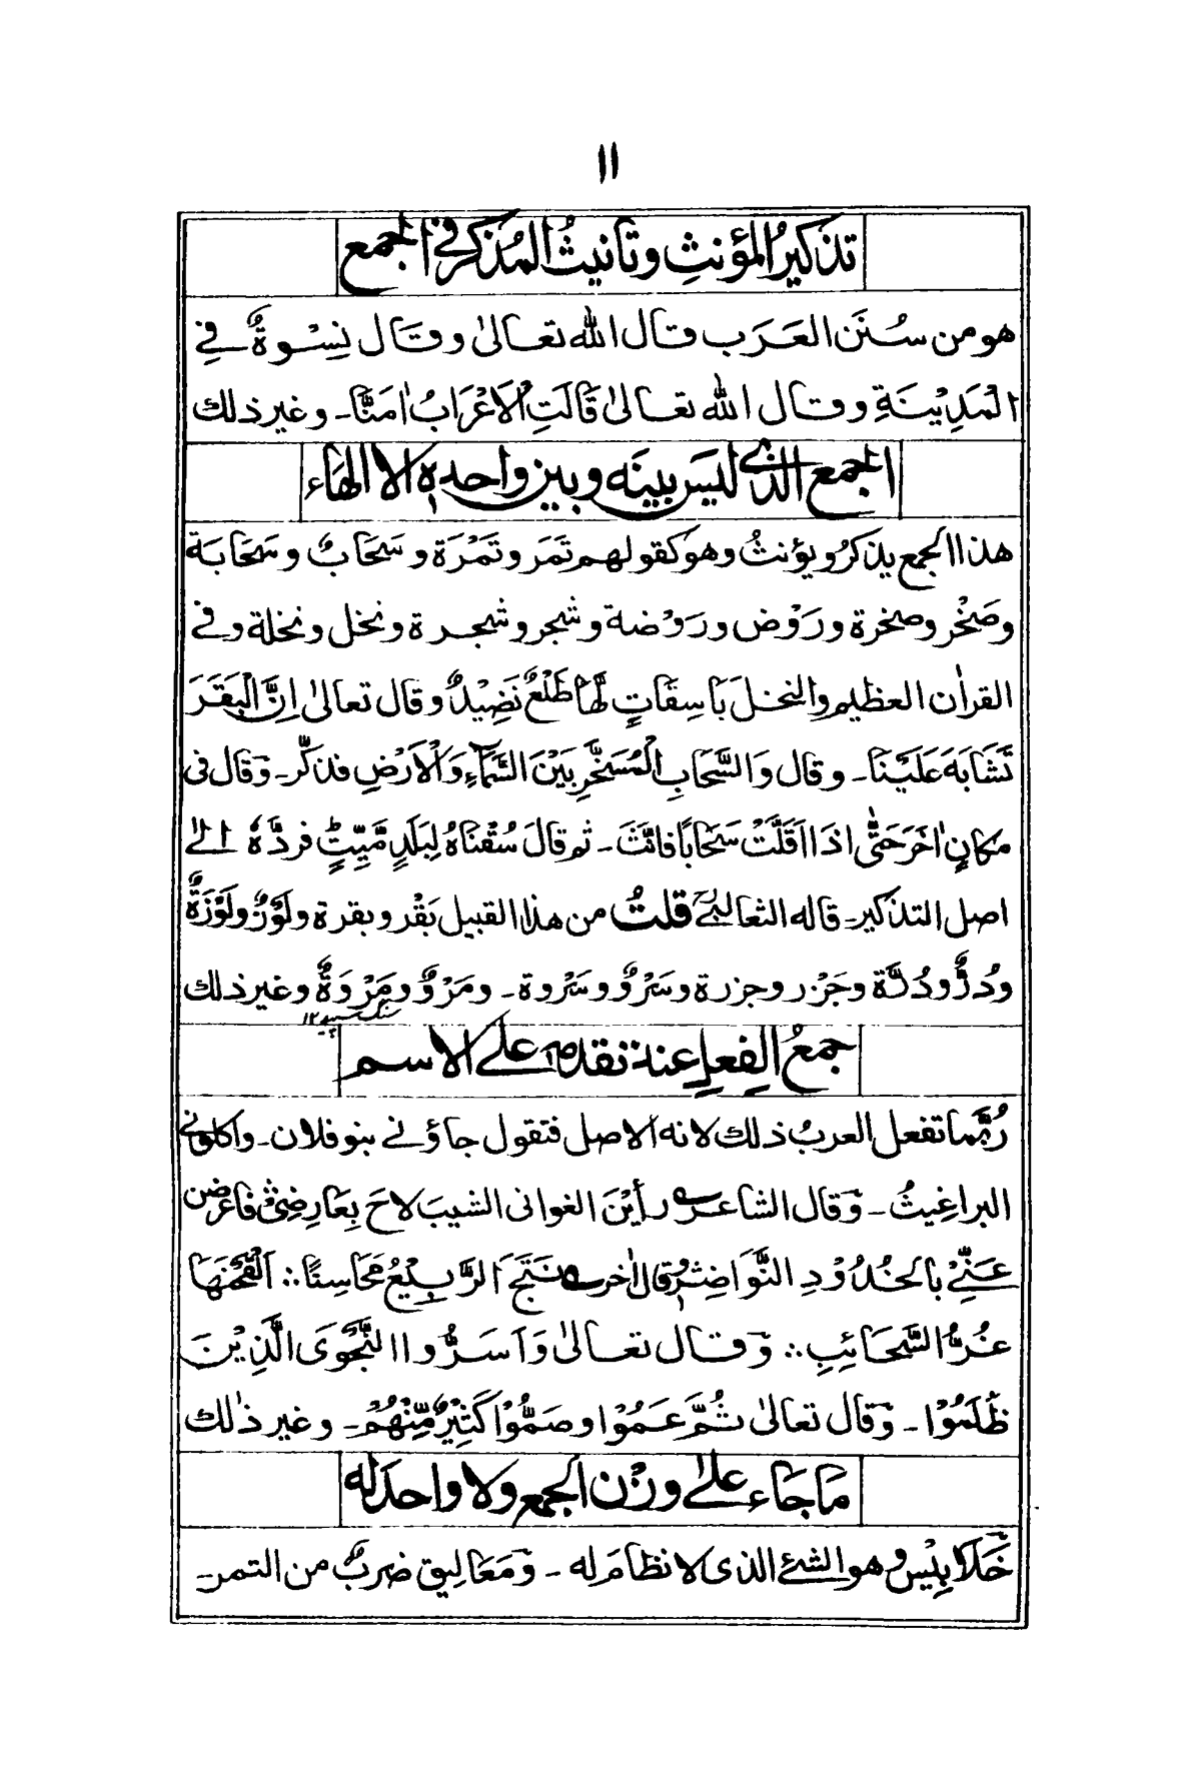 ١١
تذكيرُ المؤنثِ وتانيثُ المُذكر فى الجمع
هو من سُنَن العَرَب قال الله تعالىٰ وقَال نِسْوةٌ فِى
الْمَدِيْنَةِ وقال الله تعالىٰ قَالَتِ الْاَعْرَابُ اٰمَنَّا ـ وغير ذلك
الجمع الذى ليسَ بينَه وبين واحدهٖ الا الهَاء
هذا الجمع يذكرُ ويؤنثُ وهو كقولهم تَمَر وتَمْرَة و سَحَابٌ و سَحَابَة
وصَخْر وصخرة ورَوْض ورَوْضة وشجر وشجرة ونخل ونخلة وفى
القراٰن العظيم والنخلَ بَاسِقَاتٍ لَّهَا طَلْعٌ نَضِيْدٌ وقال تعالىٰ اِنَّ الْبَقَرَ
تَشَابَهَ عَلَيْنَا ـ وقال وَالسَّحَابِ الْمُسَخَّرِ بَيْنَ السَّمَآءِ وَالْاَرْضِ فذكّر ـ وَقال فى
مكانٍ اٰخَرَ حَتّٰى اذَا اَقَلَّتْ سَحَابًا فانّثَ ـ ثم قالَ سُقْنَاهُ لِبَلَدٍ مَّيِّتٍ فردَّهٗ الىٰ
اصل التذكير ـ قاله الثعالبىؒ قلتُ من هذا القبيل بَقْر وبقرة ولَوْزٌ ولَوْزَةٌ
ودُرٌّ ودُرَّة وجَزْر وجزرة وسَرْوٌ وسَرْوة ـ ومَرْوٌ ومَرْوَةٌ وغير ذلك
سنگ سپید ١٢
جمعُ الفِعلِ عند تقدمهٖ على الاسم
رُبَّما تفعل العربُ ذلك لانه الاصل فتقول جاؤنى بنو فلان ـ واكلونى
البراغيثُ ـ وَقال الشاعر رأيْنَ الغوانى الشيبَ لاحَ بِعَارِضِىْ فاعرضن
عَنِّىْ بالخُدُوْدِ النَّوَاضِرْ وقال اٰخر نَتَجَ الرَّبِيْعُ مَحَاسِنًا ∴ اَلْقَحْنَهَا
غُرُّ السَّحَائِبِ ∴ وَقال تعالىٰ وَاَسَرُّوا النَّجْوَى الَّذِيْنَ
ظَلَمُوْا ـ وَقال تعالىٰ ثُمَّ عَمُوْا وصَمُّوْا كَثِيْرٌ مِّنْهُمْ ـ وغير ذٰلك
مَا جَاء علىٰ وزْن الجمع ولا واحدَ له
خَلَابِيْس وهو الشئ الذى لا نظامَ له ـ وَمَعَاليق ضربٌ من التمر ـ